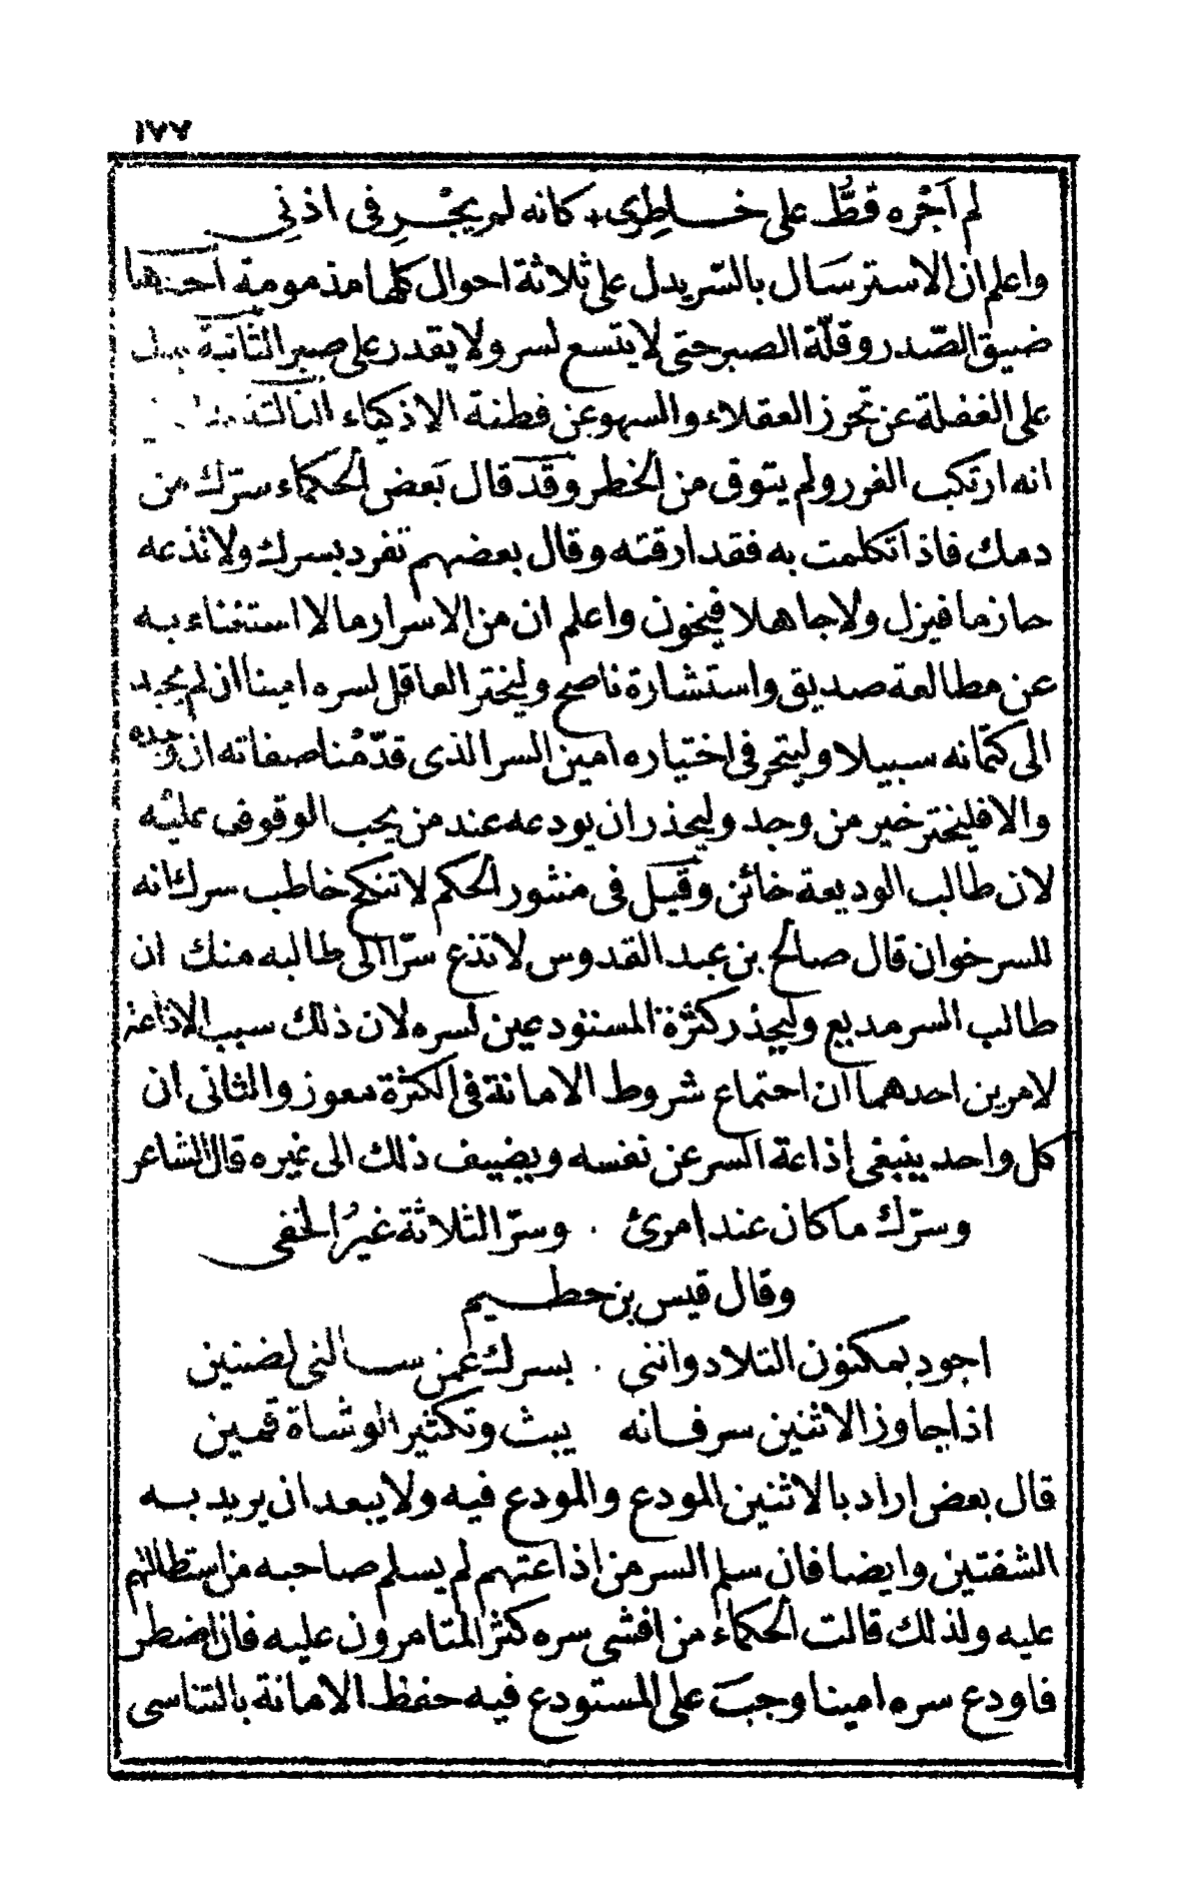 ١٧٧
لم اَجْره قطُّ على خاطِرى + كانه لم يجْرِ فى اذنِي
واعلم ان الاسترسَال بالسّر يدل على ثلاثة احوال كلها مذمومة احدها
ضيق الصّدر وقلّة الصبر حتى لا يتسع لسر ولا يقدر على صبر الثانية
على الغفلة عن تحرز العقلاء والسهو عن فطنة الاذكياء الثالثة
انه ارتكب الغرر ولم يتوق من الخطر وقَد قال بَعض الحكماء سرّك من
دمك فاذا تكلمت به فقد ارقته وقال بعضهم تفرد بسرك ولا تذعه
حازما فيزل ولا جاهلا فيخون واعلم ان من الاسرار ما لا استغناء به
عن مطالعة صديق واستشارة ناصح وليختر العاقل لسره امينا ان لم يجد
الى كتمانه سبيلا وليتحر فى اختياره امين السر الذى قدّمْنا صفاته ان وجده
والا فليختر خير من وجد وليحذر ان يودعه عند من يحب الوقوف عليْه
لان طالب الوديعة خائن وقَيل فى منثور الحكم لا تنكح خاطب سرك انه
للسر خوان قال صالح بن عبد القدوس لا تذع سرّا الى طالبه منك ان
طالب السر مديع وليحذر كثرة المستودعين لسره لان ذلك سبب الاذاعة
لامرين احدهما ان اجتماع شروط الامانة فى الكثرة معوز والثانى ان
كل واحد ينبغى اذاعة السر عن نفسه ويضيف ذلك الى غيره قال الشاعر
وسرّك ما كان عند امرئ . وسرّ الثلاثة غيرُ الخفى
وقال قيس بن حطيم
اجود بمكنون التلاد واننى . بسرك عمن سالنى لضنين
اذا جاوز الاثنين سر فانه يبث وتكثير الوشاة قمين
قال بعض اراد بالاثنين المودع والمودع فيه ولا يبعد ان يريد به
الشفتين وايضا فان سلم السر من اذاعتهم لم يسلم صاحبه من استطالتهم
عليه ولذلك قالت الحكماء من افشى سره كثر المتامرون عليه فان اضطر
فاودع سره امينا وجبَ على المستودع فيه حفظ الامانة بالتناسى